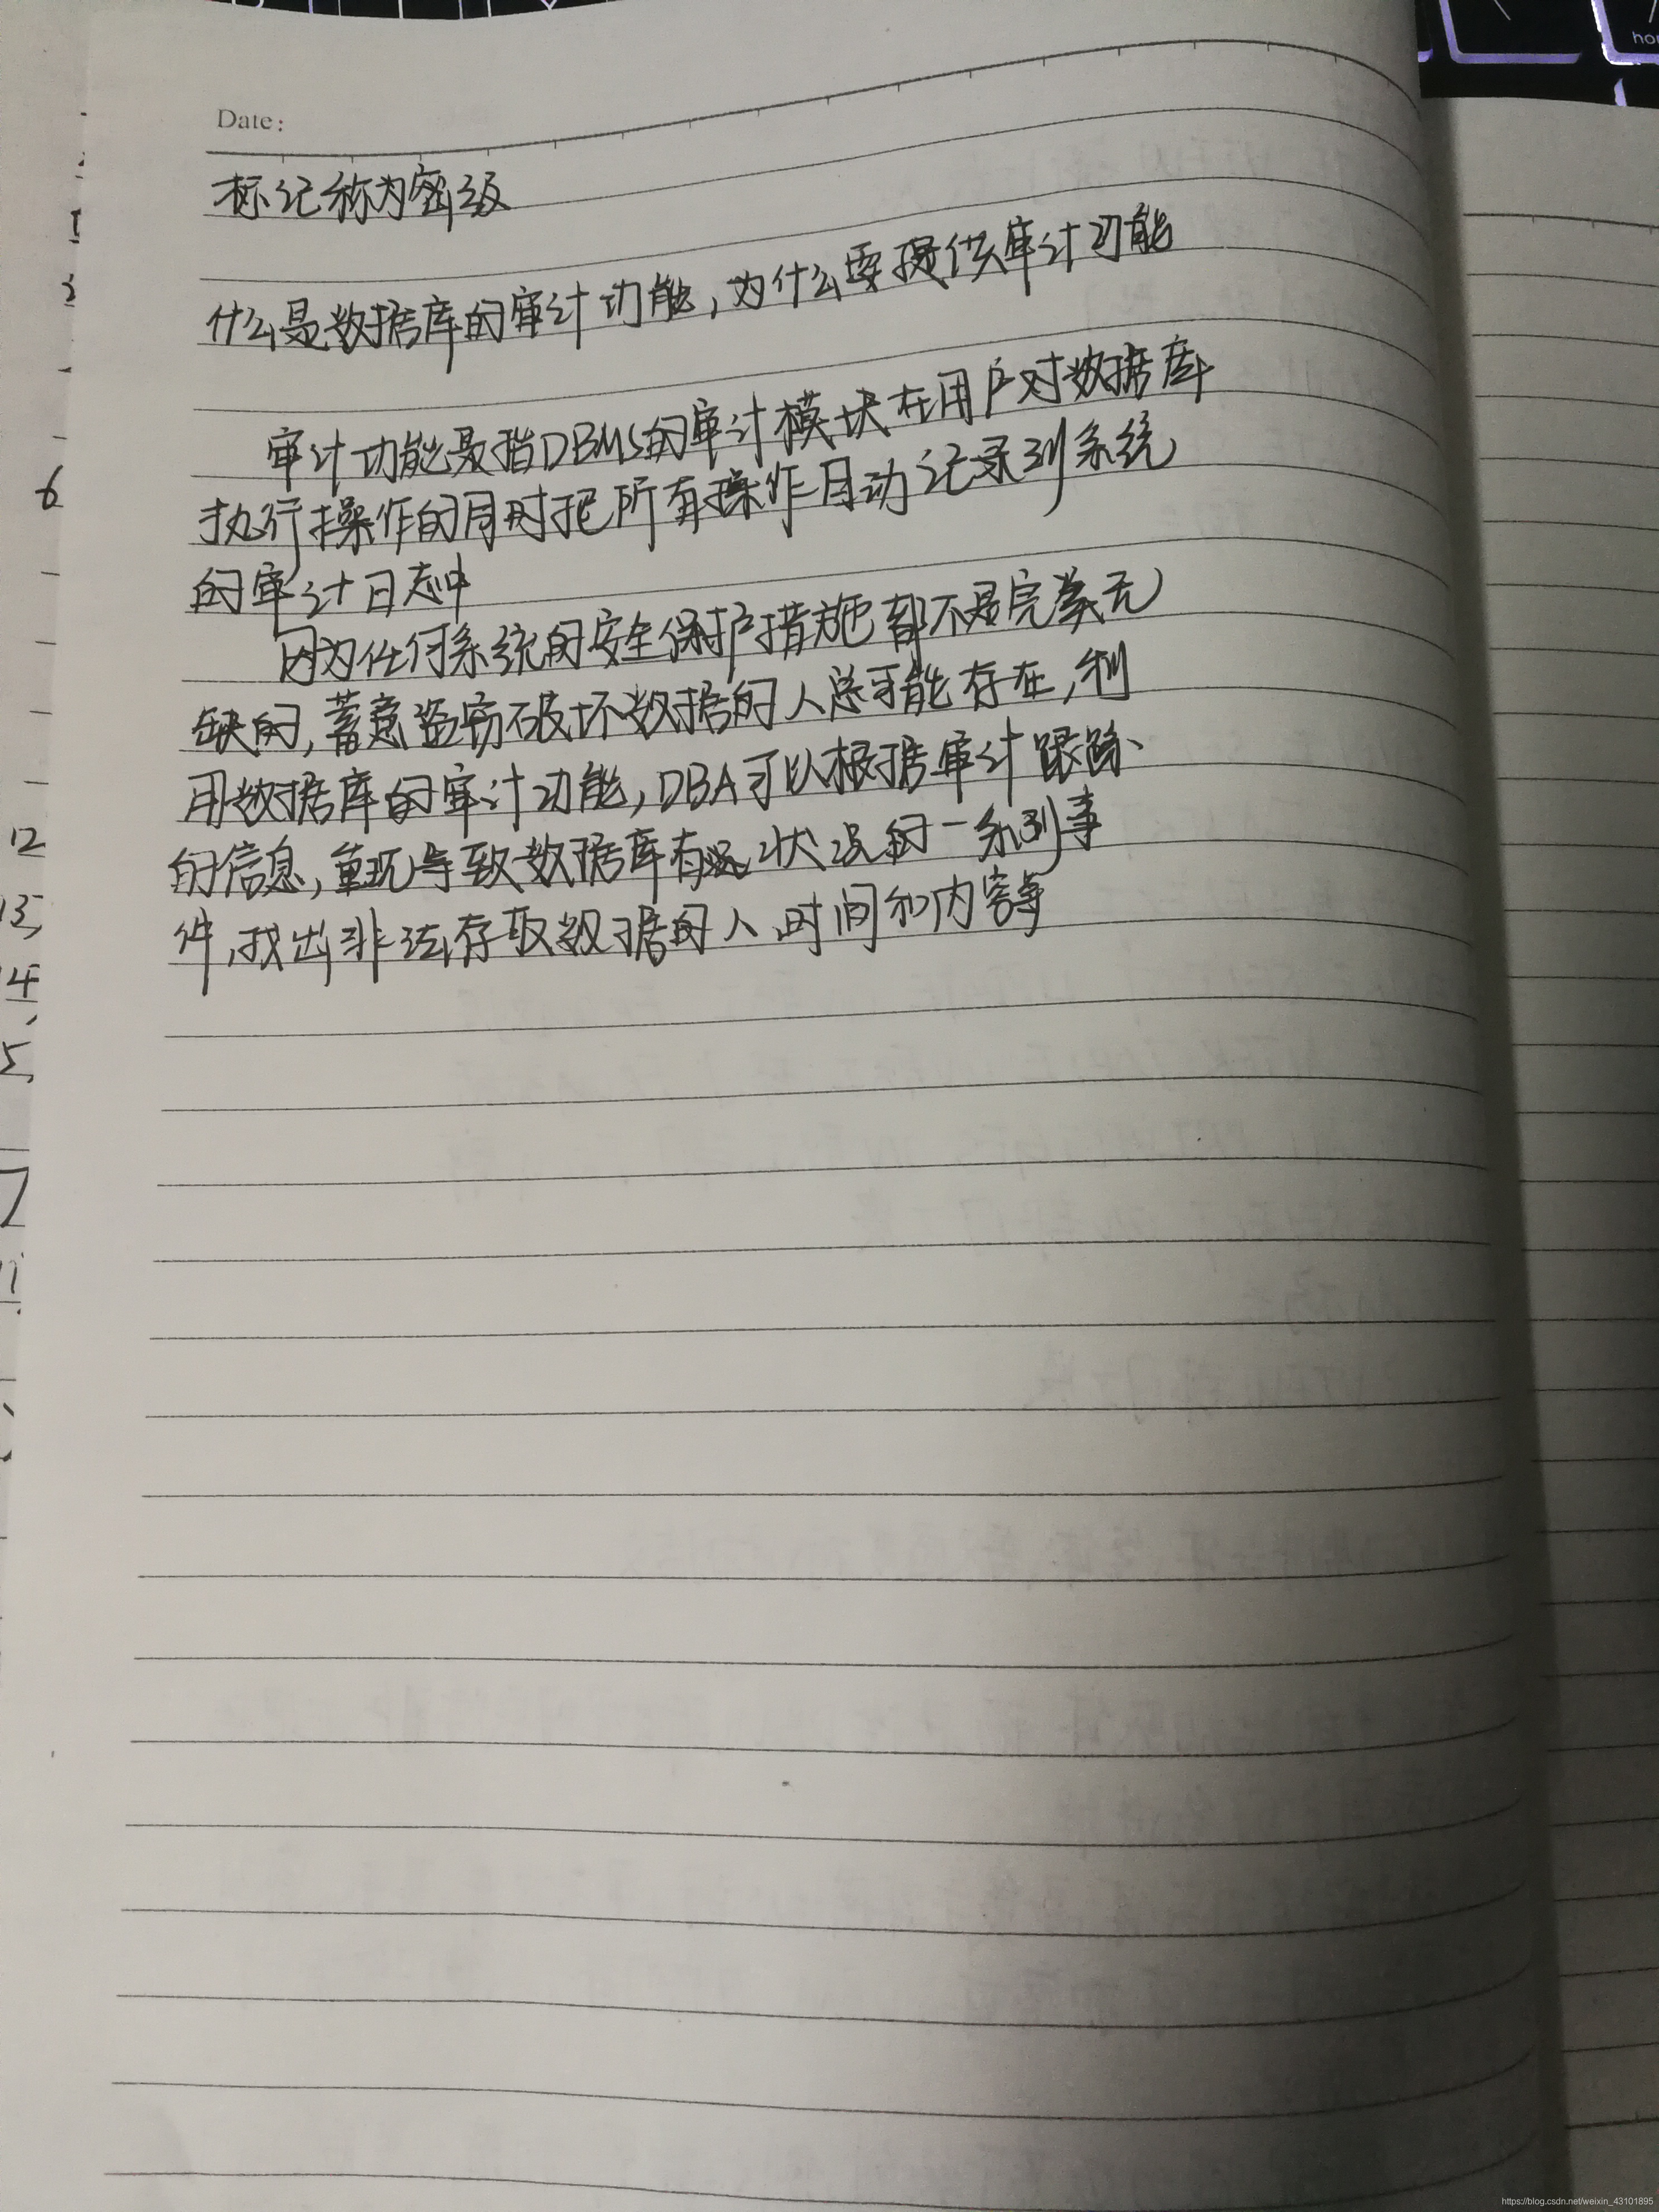 Date:
标记称为密级
什么是数据库的审计功能,为什么要提供审计功能
审计功能是指DBMS的审计模块在用户对数据库
执行操作的同时把所有操作自动记录到系统
的审计日志中
因为任何系统的安全保护措施都不是完美无
缺的,蓄意盗窃破坏数据的人总可能存在,利
用数据库的审计功能,DBA可以根据审计跟踪
的信息,重现导致数据库有状况的一系列事
件,找出非法存取数据的人、时间和内容等
6
12
13,
14
5,
https://blog.csdn.net/weixin_43101895